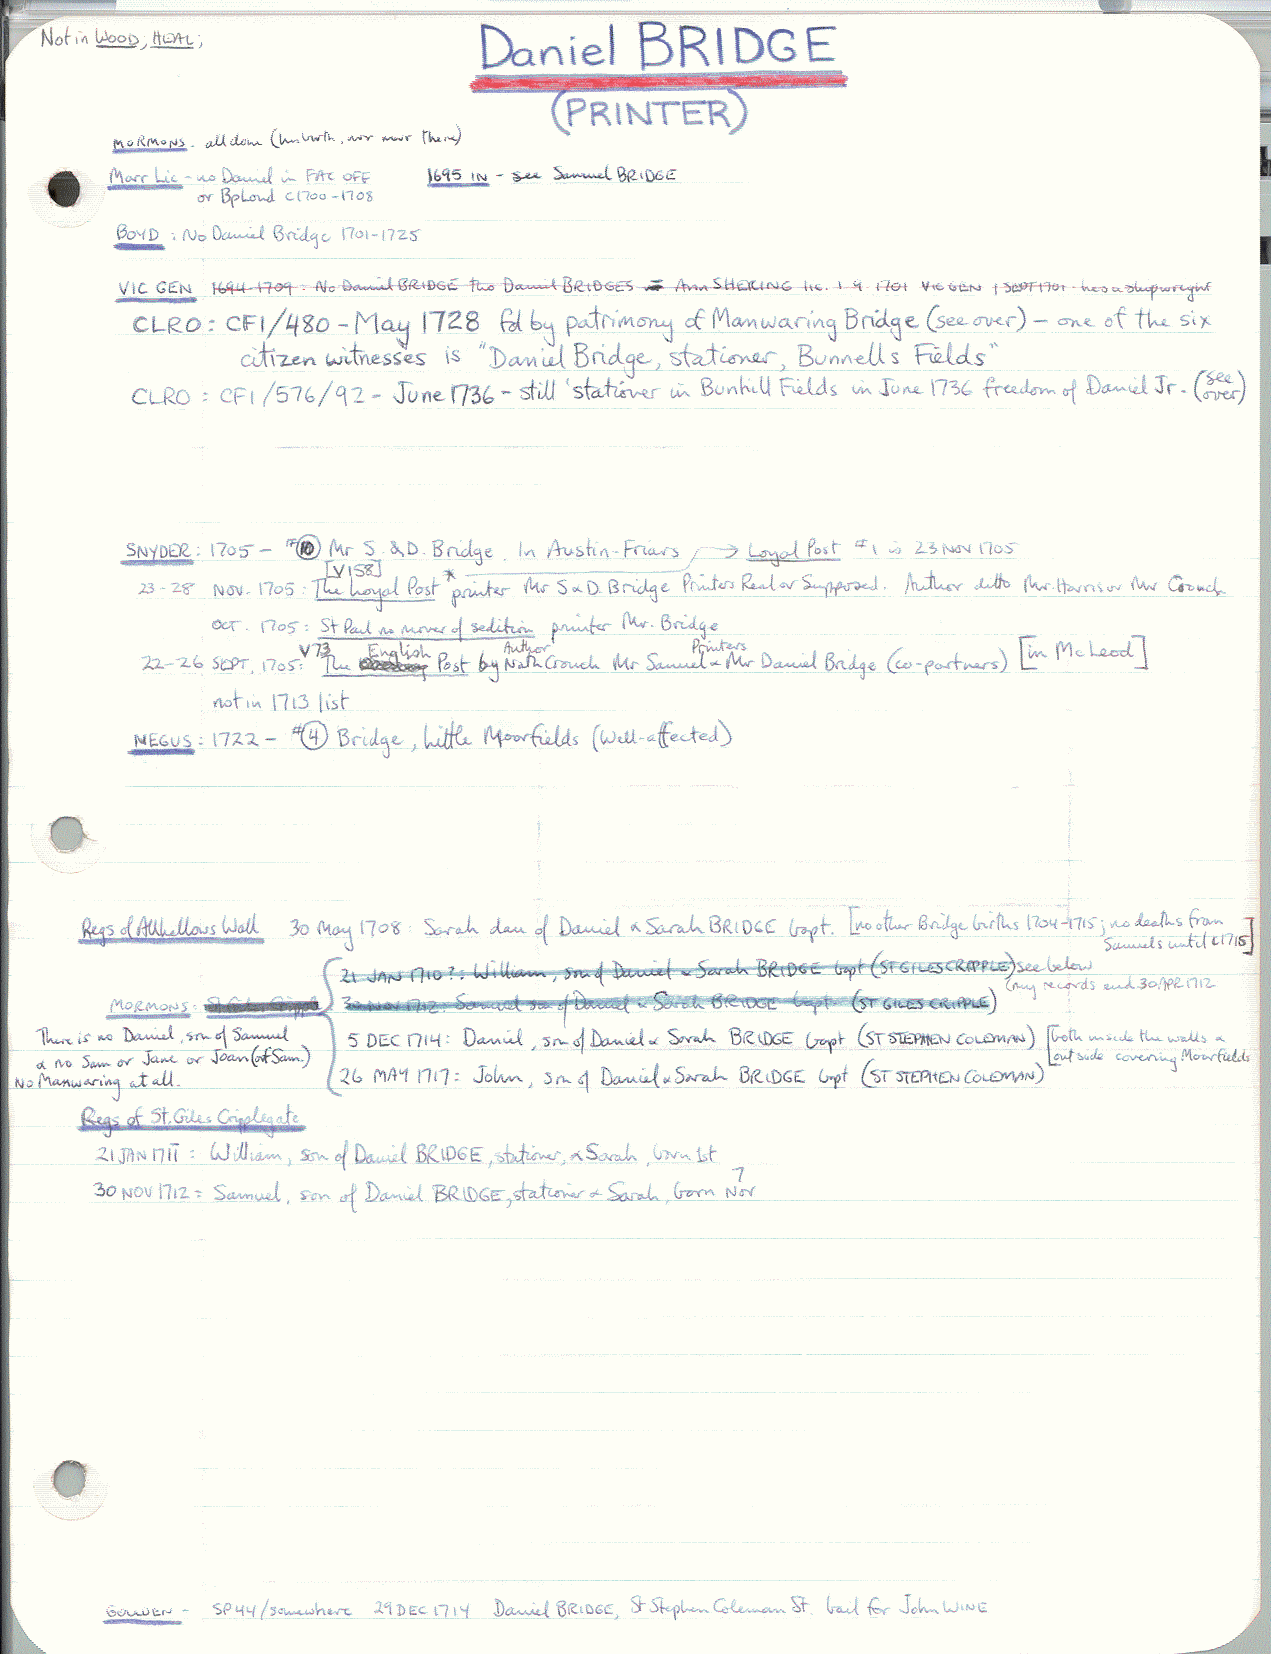 Not in WOOD; HEAL;
Daniel BRIDGE
(PRINTER)
MORMONS - all done (his birth, nor marr there)
Marr Lic - no Daniel in FAC OFF
or Bp Lond c1700-1708
1695 IN - see Samuel BRIDGE
BOYD : No Daniel Bridge 1701-1725
VIC GEN 1694-1709 : No Daniel BRIDGE two Daniel BRIDGES = Ann SHERING lic. 1 9 1701 VIC GEN 1 SEPT 1701 - he is a shipwright
CLRO : CF1/480 - May 1728 fd by patrimony of Manwaring Bridge (see over) - one of the six
citizen witnesses is "Daniel Bridge, stationer, Bunnells Fields"
CLRO : CF1/576/92 - June 1736 - still 'stationer in Bunhill Fields in June 1736 freedom of Daniel Jr. - (see over)
SNYDER : 1705 - #10 Mr S. & D. Bridge. In Austin-Friars → Loyal Post #1 is 23 NOV 1705
[V158]
23-28 NOV. 1705 : The Loyal Post * printer Mr S & D. Bridge Printers Real or Supposed. Author ditto Mr. Harris or Mr Crouch
OCT. 1705 : St Paul no mover of sedition printer Mr. Bridge
V73 English Author Printers
22-26 SEPT, 1705: The Post by Nath Crouch Mr Samuel & Mr Daniel Bridge (co-partners) [in McLeod]
not in 1713 list
NEGUS : 1722 - #4 Bridge, Little Moorfields (Well-affected)
Regs of Allhallows Wall 30 May 1708 : Sarah dau of Daniel & Sarah BRIDGE bapt. [no other Bridge births 1704-1715; no deaths from
Samuels until c1715]
21 JAN 1710?: William, son of Daniel & Sarah BRIDGE bapt (ST GILES CRIPPLE) see below
(my records end 30 APR 1712
MORMONS : St Giles Cripple 30 NOV 1712 : Samuel son of Daniel & Sarah BRIDGE bapt (ST GILES CRIPPLE)
There is no Daniel, son of Samuel
& no Sam or Jane or Joan (of Sam.)
No Manwaring at all.
5 DEC 1714 : Daniel, son of Daniel & Sarah BRIDGE bapt (ST STEPHEN COLEMAN) [both inside the walls &
outside covering Moorfields
26 MAY 1717 : John, son of Daniel & Sarah BRIDGE bapt (ST STEPHEN COLEMAN)
Regs of St. Giles Cripplegate
21 JAN 1711 : William, son of Daniel BRIDGE, stationer, & Sarah, born 1st
30 NOV 1712 : Samuel, son of Daniel BRIDGE, stationer & Sarah, born Nov 7
GOLDEN - SP44/somewhere 29 DEC 1714 Daniel BRIDGE, St Stephen Coleman St. bail for John WINE